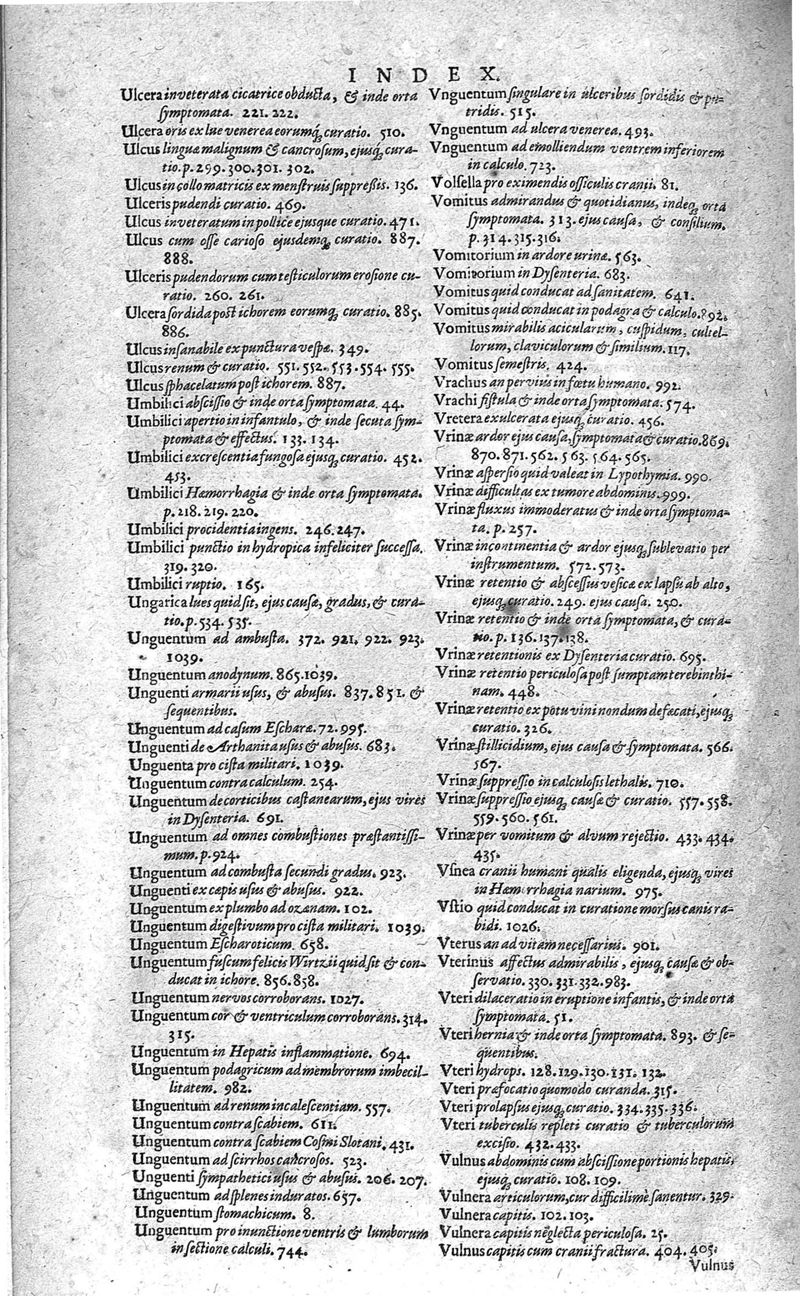 INDEX.
Ulcera inveterata cicatrice obducta, & inde orta
symptomata. 221. 222.
Ulcera oris ex lue venerea eorumq́; curatio. 510.
Ulcus linguæ malignum & cancrosum, ejusq́; cura-
tio. p. 299. 300. 301. 302.
Ulcus in collo matricis ex menstruis suppressis. 136.
Ulceris pudendi curatio. 469.
Ulcus inveteratum in pollice ejusque curatio. 471.
Ulcus cum osse carioso ejusdemq; curatio. 887.
888.
Ulceris pudendorum cum testiculorum erosione cu-
ratio. 260. 261.
Ulcera sordida post ichorem eorumq; curatio. 885.
886.
Ulcus insanabile ex punctura vespæ. 349.
Ulcus renum & curatio. 551. 552. 553. 554. 555.
Ulcus sphacelatum post ichorem. 887.
Umbilici abscissio & inde orta symptomata. 44.
Umbilici apertio in infantulo, & inde secuta sym-
ptomata & effectus. 133. 134.
Umbilici excrescentia fungosa ejusq; curatio. 452.
453.
Umbilici Hæmorrhagia & inde orta symptomata.
p. 218. 219. 220.
Umbilici procidentia ingens. 246. 247.
Umbilici punctio in hydropica infeliciter successa.
319. 320.
Umbilici ruptio. 165.
Ungarica lues quid sit, ejus causæ, gradus, & cura-
tio. p. 534. 535.
Unguentum ad ambusta. 372. 921. 922. 923.
1039.
Unguentum anodynum. 865. 1039.
Unguenti armarii usus, & abusus. 837. 851. &
sequentibus.
Unguentum ad casum Escharæ. 72. 995.
Unguenti de Arthanita usus & abusus. 683.
Unguenta pro cista militari. 1039.
Unguentum contra calculum. 254.
Unguentum de corticibus castanearum, ejus vires
in Dysenteria. 691.
Unguentum ad omnes combustiones præstantissi-
mum. p. 924.
Unguentum ad combusta secundi gradus. 923.
Unguenti ex cæpis usus & abusus. 922.
Unguentum ex plumbo ad ozænam. 102.
Unguentum digestivum pro cista militari. 1039.
Unguentum Escharoticum. 658.
Unguentum fuscum felicis Wirtzii quid sit & con-
ducat in ichore. 856. 858.
Unguentum nervos corroborans. 1027.
Unguentum cor & ventriculum corroborans. 314.
315.
Unguentum in Hepatis inflammatione. 694.
Unguentum podagricum ad membrorum imbecil-
litatem. 982.
Unguentum ad renum incalescentiam. 557.
Unguentum contra scabiem. 611.
Unguentum contra scabiem Cosmi Slotani. 431.
Unguentum ad scirrhos cancrosos. 523.
Unguenti sympathetici usus & abusus. 206. 207.
Unguentum ad splenes induratos. 657.
Unguentum stomachicum. 8.
Unguentum pro inunctione ventris & lumborum
in sectione calculi. 744.
Vnguentum singulare in ulceribus sordidis & pu-
tridis. 515.
Vnguentum ad ulcera venerea. 493.
Vnguentum ad emolliendum ventrem inferiorem
in calculo. 723.
Volsella pro eximendis ossiculis cranii. 81.
Vomitus admirandus & quotidianus, indeq; orta
symptomata. 313. ejus causa, & consilium.
p. 314. 315. 316.
Vomitorium in ardore urinæ. 563.
Vomitorium in Dysenteria. 683.
Vomitus quid conducat ad sanitatem. 641.
Vomitus quid conducat in podagra & calculo. 892.
Vomitus mirabilis acicularum, cuspidum, cultel-
lorum, claviculorum & similium. 117.
Vomitus semestris. 424.
Vrachus an pervius in fœtu humano. 992.
Vrachi fistula & inde orta symptomata. 574.
Vretera exulcerata ejusq; curatio. 456.
Vrinæ ardor ejus causa, symptomata & curatio. 869.
870. 871. 562. 563. 564. 565.
Vrinæ aspersio quid valeat in Lypothymia. 990.
Vrinæ difficultas ex tumore abdominis. 999.
Vrinæ fluxus immoderatus & inde orta symptoma-
ta. p. 257.
Vrinæ incontinentia & ardor ejusq; sublevatio per
instrumentum. 572. 573.
Vrinæ retentio & abscessus vesicæ ex lapsu ab alto,
ejusq; curatio. 249. ejus causa. 250.
Vrinæ retentio & inde orta symptomata, & cura-
tio. p. 136. 137. 138.
Vrinæ retentionis ex Dysenteria curatio. 695.
Vrinæ retentio periculosa post sumptam terebinthi-
nam. 448.
Vrinæ retentio ex potu vini nondum defæcati, ejusq;
curatio. 326.
Vrinæ stillicidium, ejus causa & symptomata. 566.
567.
Vrinæ suppressio in calculosis lethalis. 710.
Vrinæ suppressio ejusq; causæ & curatio. 557. 558.
559. 560. 561.
Vrinæ per vomitum & alvum rejectio. 433. 434.
435.
Vsnea cranii humani qualis eligenda, ejusq; vires
in Hæmorrhagia narium. 975.
Vstio quid conducat in curatione morsus canis ra-
bidi. 1026.
Vterus an ad vitam necessarius. 901.
Vterinus affectus admirabilis, ejusq; causæ & ob-
servatio. 330. 331. 332. 983.
Vteri dilaceratio in eruptione infantis, & inde orta
symptomata. 51.
Vteri hernia & inde orta symptomata. 893. & se-
quentibus.
Vteri hydrops. 128. 129. 130. 131. 132.
Vteri præfocatio quomodo curanda. 315.
Vteri prolapsus ejusq; curatio. 334. 335. 336.
Vteri tuberculis repleti curatio & tuberculorum
excisio. 432. 433.
Vulnus abdominis cum abscissione portionis hepatis,
ejusq; curatio. 108. 109.
Vulnera articulorum, cur difficilime sanentur. 329.
Vulnera capitis. 102. 103.
Vulnera capitis neglecta periculosa. 25.
Vulnus capitis cum cranii fractura. 404. 405.
Vulnus